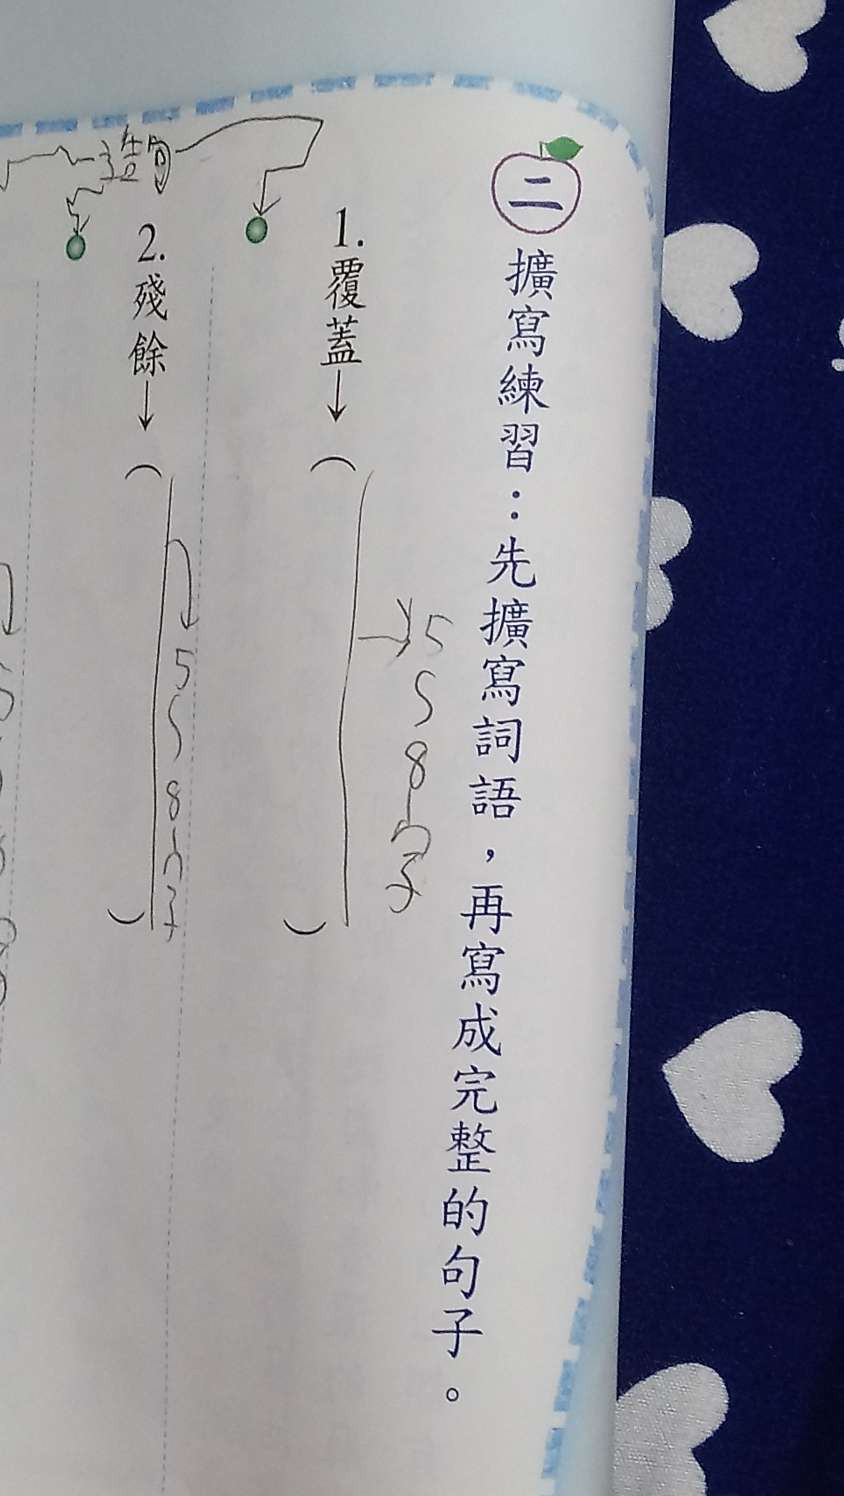 二
擴寫練習：先擴寫詞語，再寫成完整的句子。
5~8個字
1.覆蓋→（　）
造句
2.殘餘→（　）
5~8個字